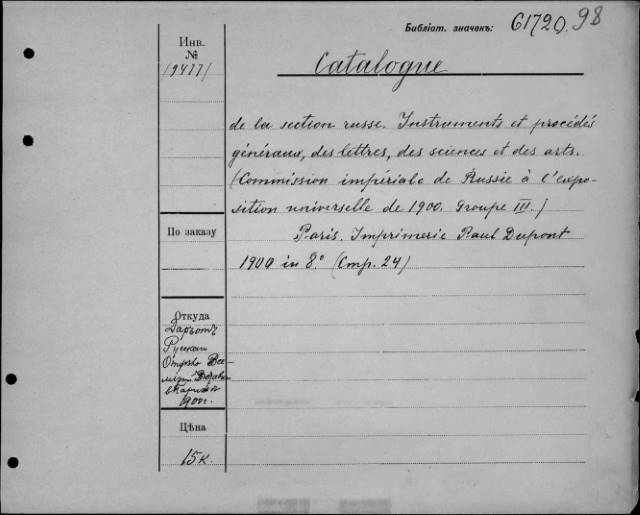 Библіот. значекъ: 61720. 98
Инв.
№
19477/
Catalogue
de la section russe. Instruments et procédés
généraux, des lettres, des sciences et des arts.
(Commission impériale de Russie à l'expo-
sition universelle de 1900. Groupe III.)
По заказу
Paris. Imprimerie Paul Dupont
1900 in 8° (стр. 24)
Откуда
Даръ отъ
Русскаго
Отдѣла Все-
1900 г.
Цѣна
15 к.